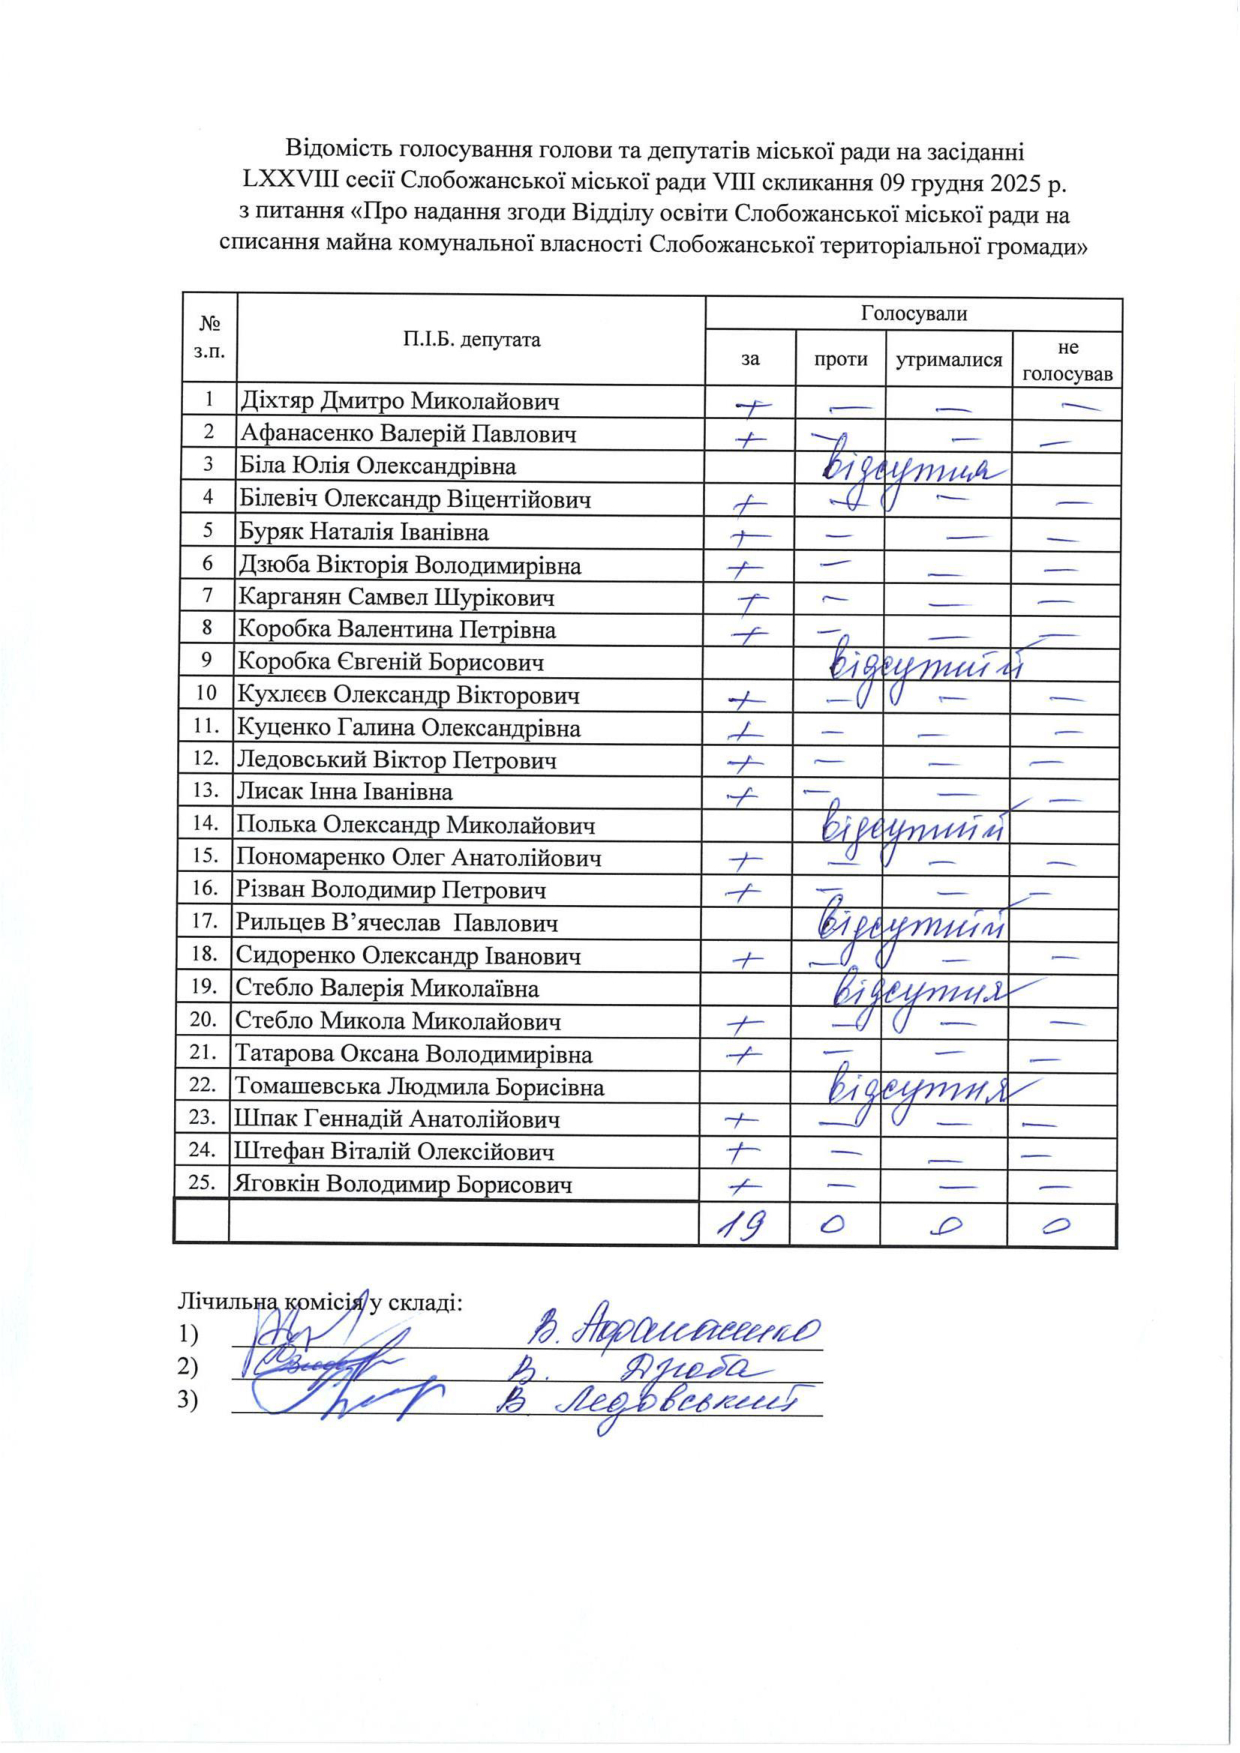 Відомість голосування голови та депутатів міської ради на засіданні
LXXVIII сесії Слобожанської міської ради VIII скликання 09 грудня 2025 р.
з питання «Про надання згоди Відділу освіти Слобожанської міської ради на
списання майна комунальної власності Слобожанської територіальної громади»
№ з.п. П.І.Б. депутата Голосували
за проти утрималися не голосував
1 Діхтяр Дмитро Миколайович + — — —
2 Афанасенко Валерій Павлович + — — —
3 Біла Юлія Олександрівна відсутня
4 Білевіч Олександр Віцентійович + — — —
5 Буряк Наталія Іванівна + — — —
6 Дзюба Вікторія Володимирівна + — — —
7 Карганян Самвел Шурікович + — — —
8 Коробка Валентина Петрівна + — — —
9 Коробка Євгеній Борисович відсутній
10 Кухлєєв Олександр Вікторович + — — —
11. Куценко Галина Олександрівна + — — —
12. Ледовський Віктор Петрович + — — —
13. Лисак Інна Іванівна + — — —
14. Полька Олександр Миколайович відсутній
15. Пономаренко Олег Анатолійович + — — —
16. Різван Володимир Петрович + — — —
17. Рильцев В’ячеслав Павлович відсутній
18. Сидоренко Олександр Іванович + — — —
19. Стебло Валерія Миколаївна відсутня
20. Стебло Микола Миколайович + — — —
21. Татарова Оксана Володимирівна + — — —
22. Томашевська Людмила Борисівна відсутня
23. Шпак Геннадій Анатолійович + — — —
24. Штефан Віталій Олексійович + — — —
25. Яговкін Володимир Борисович + — — —
19 0 0 0
Лічильна комісія у складі:
1) В. Афанасенко
2) В. Дзюба
3) В Ледовський